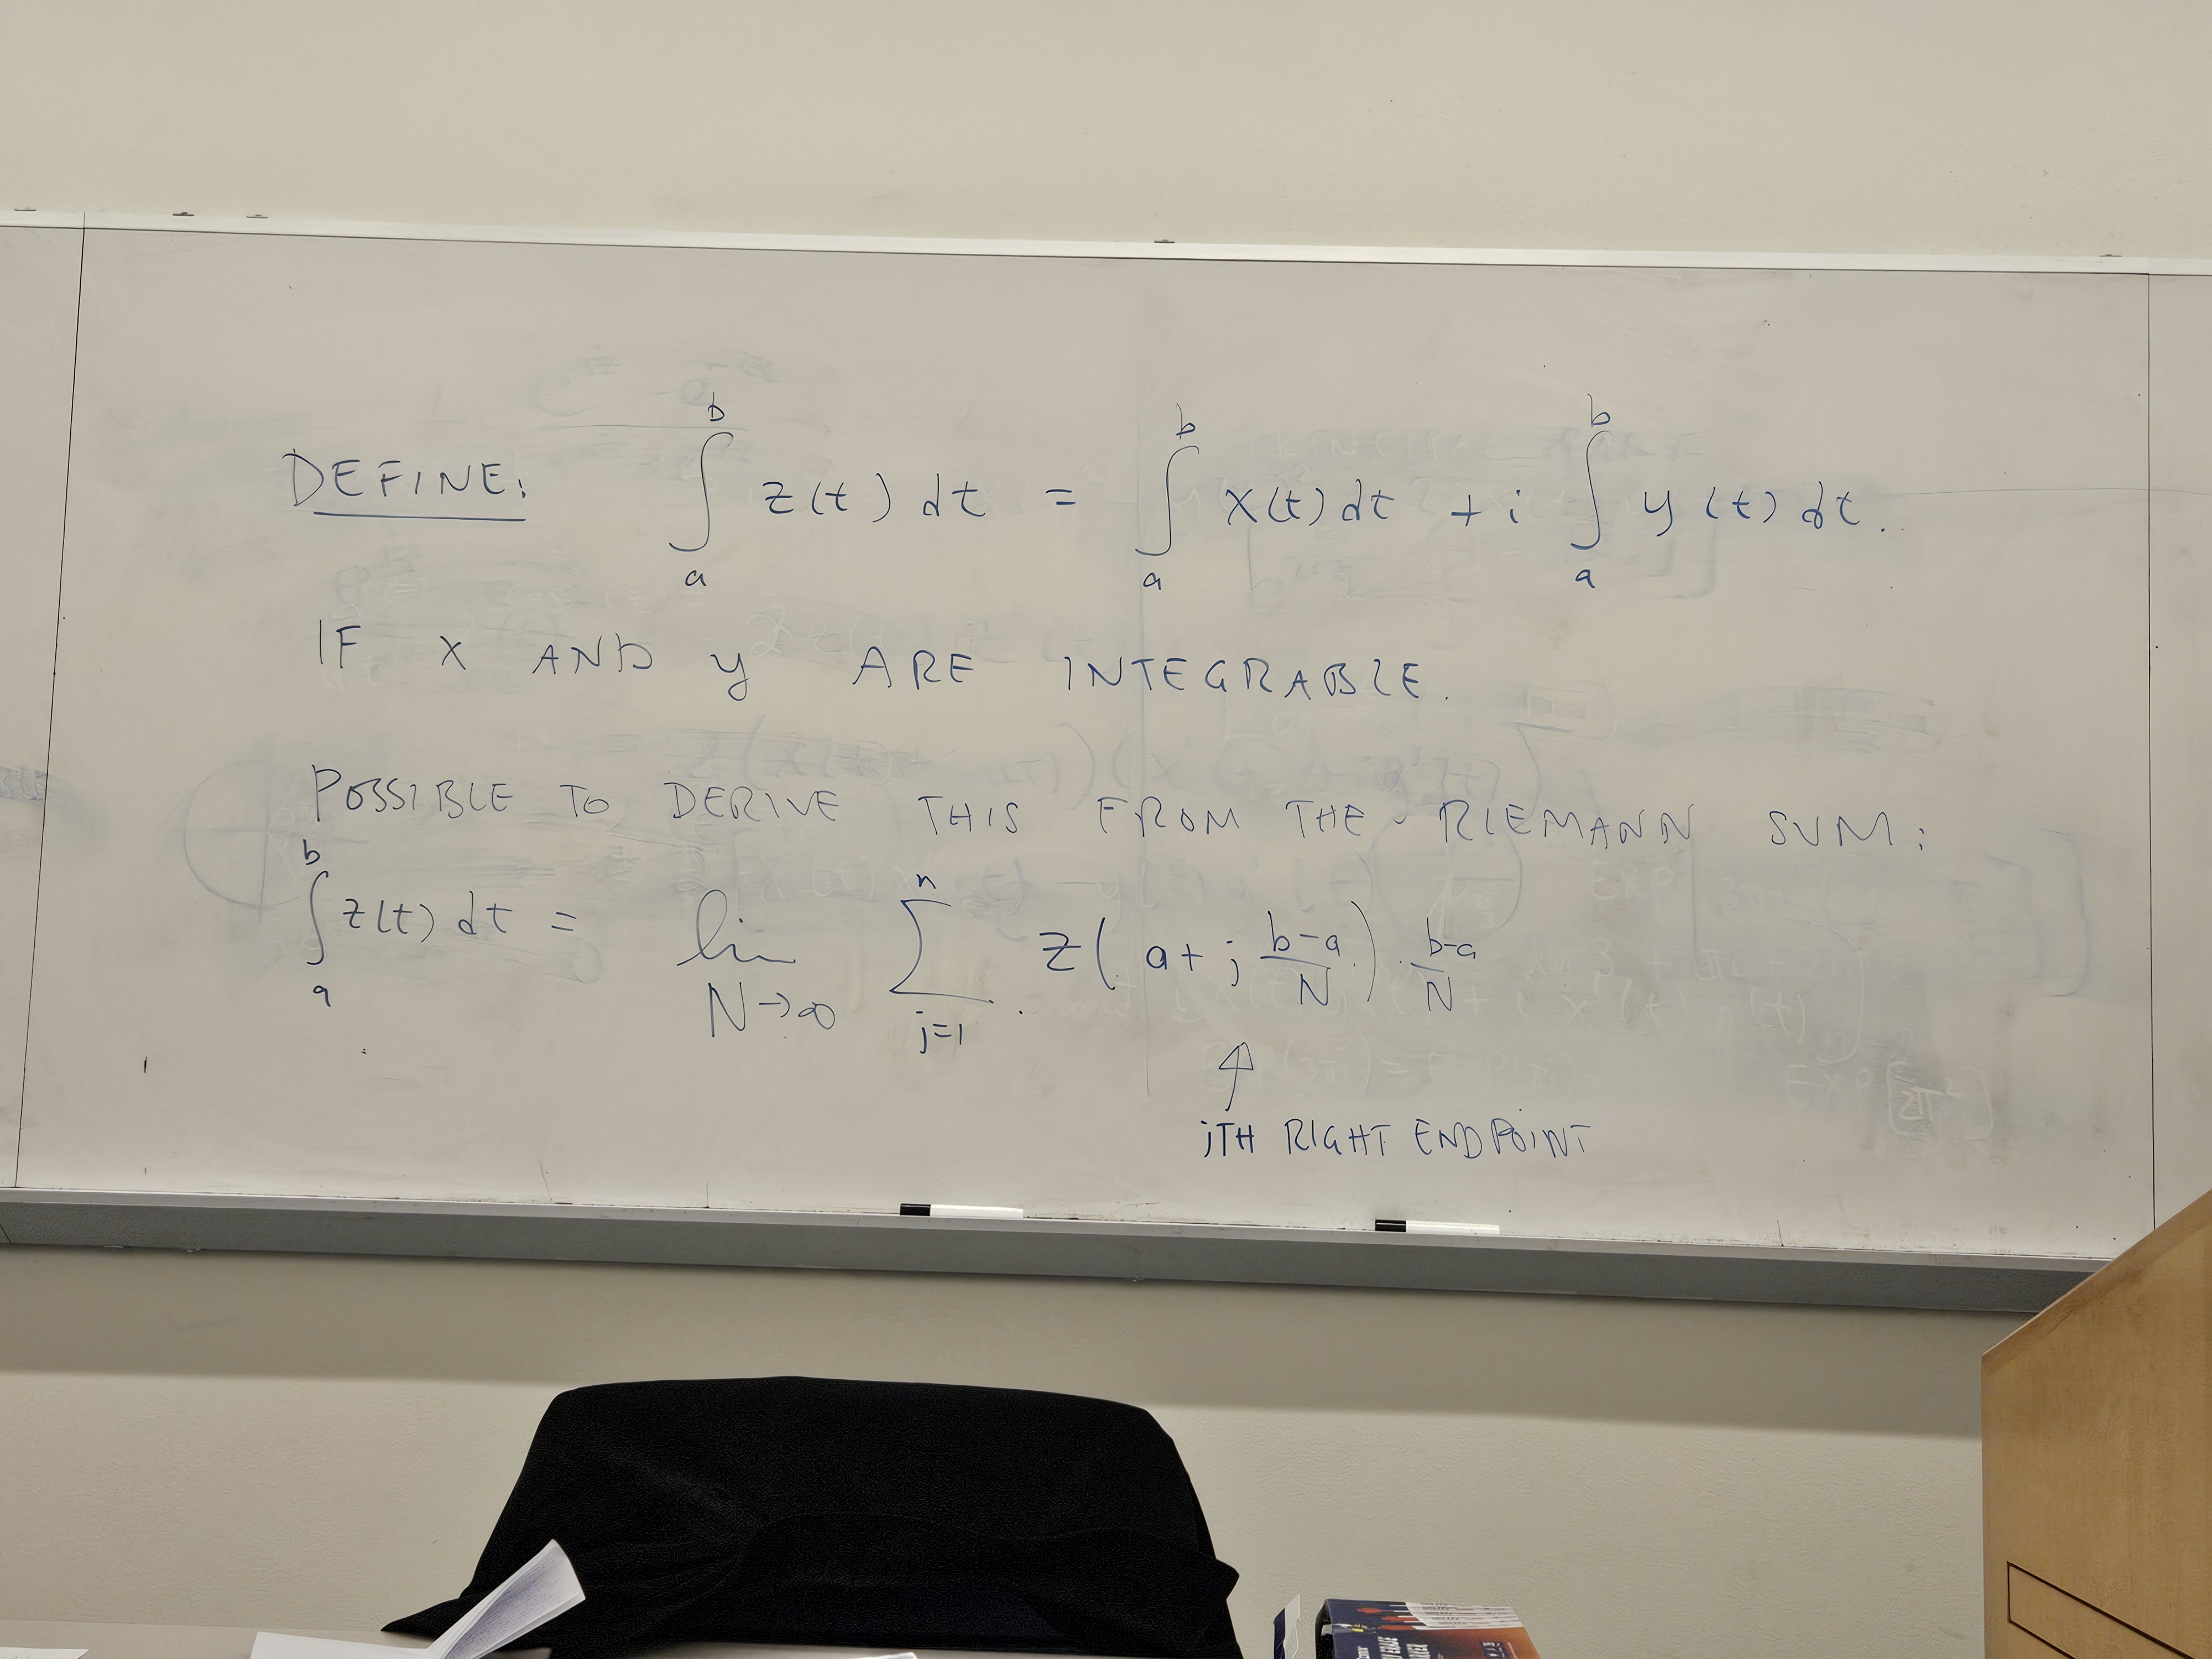 DEFINE: ∫_a^b z(t) dt = ∫_a^b x(t) dt + i ∫_a^b y(t) dt.
IF x AND y ARE INTEGRABLE.
POSSIBLE TO DERIVE THIS FROM THE RIEMANN SUM:
∫_a^b z(t) dt = lim_{N→∞} ∑_{j=1}^n z(a + j (b-a)/N) · (b-a)/N
↑
jTH RIGHT ENDPOINT